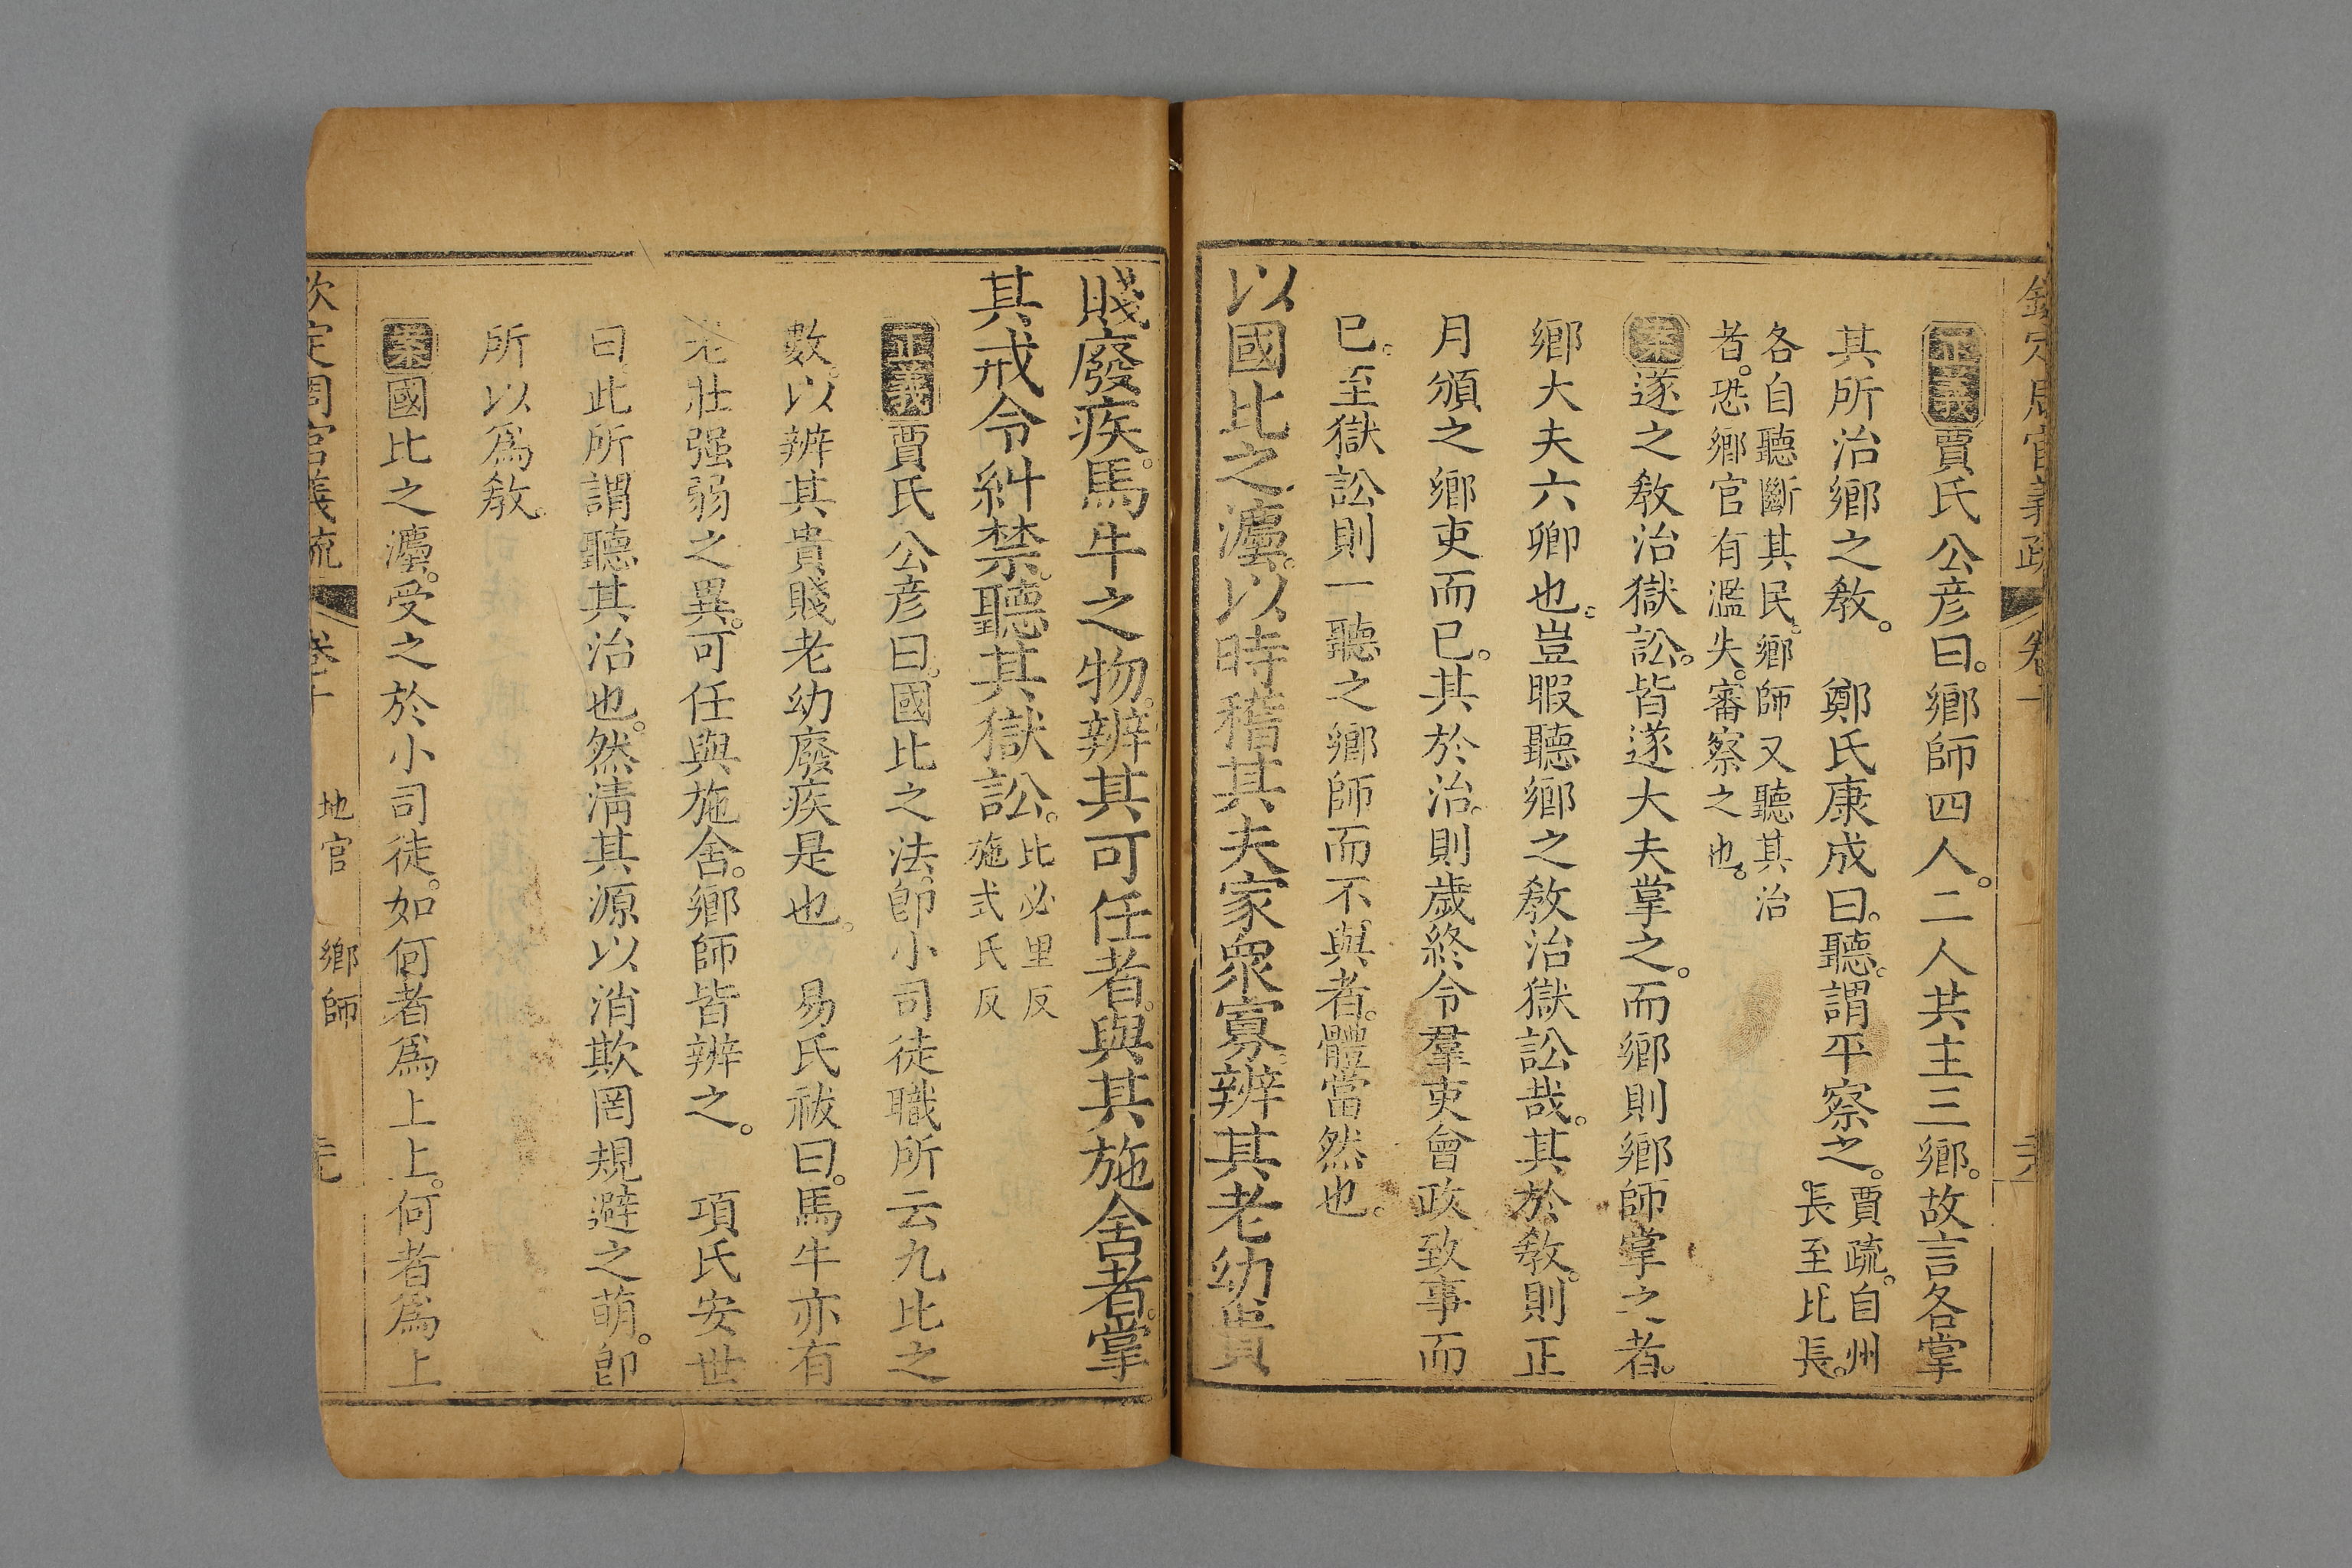 欽定周官義疏 卷十
正義賈氏公彦曰。鄉師四人。二人共主三鄉。故言各掌
其所治鄉之敎。 鄭氏康成曰。聽。謂平察之。賈疏。自州
長至比長。
各自聽斷其民。鄉師又聽其治
者。恐鄉官有濫失。審察之也。
案遂之敎治獄訟。皆遂大夫掌之。而鄉則鄉師掌之者。
鄉大夫六卿也。豈暇聽鄉之敎治獄訟哉。其於敎。則正
月頒之鄉吏而已。其於治。則歲終令羣吏會政致事而
已。至獄訟則一聽之鄉師而不與者。體當然也。
以國比之灋。以時稽其夫家衆寡。辨其老幼貴
賤廢疾。馬牛之物。辨其可任者。與其施舍者。掌
其戒令糾禁。聽其獄訟。比必里反
施式氏反
正義賈氏公彦曰。國比之法。卽小司徒職所云九比之
數。以辨其貴賤老幼廢疾是也。 易氏祓曰。馬牛亦有
老壯强弱之異。可任與施舍。鄉師皆辨之。 項氏安世
曰。此所謂聽其治也。然淸其源以消欺罔規避之萌。卽
所以爲敎。
案國比之灋。受之於小司徒。如何者爲上上。何者爲上
欽定周官義疏 卷十 地官 鄉師